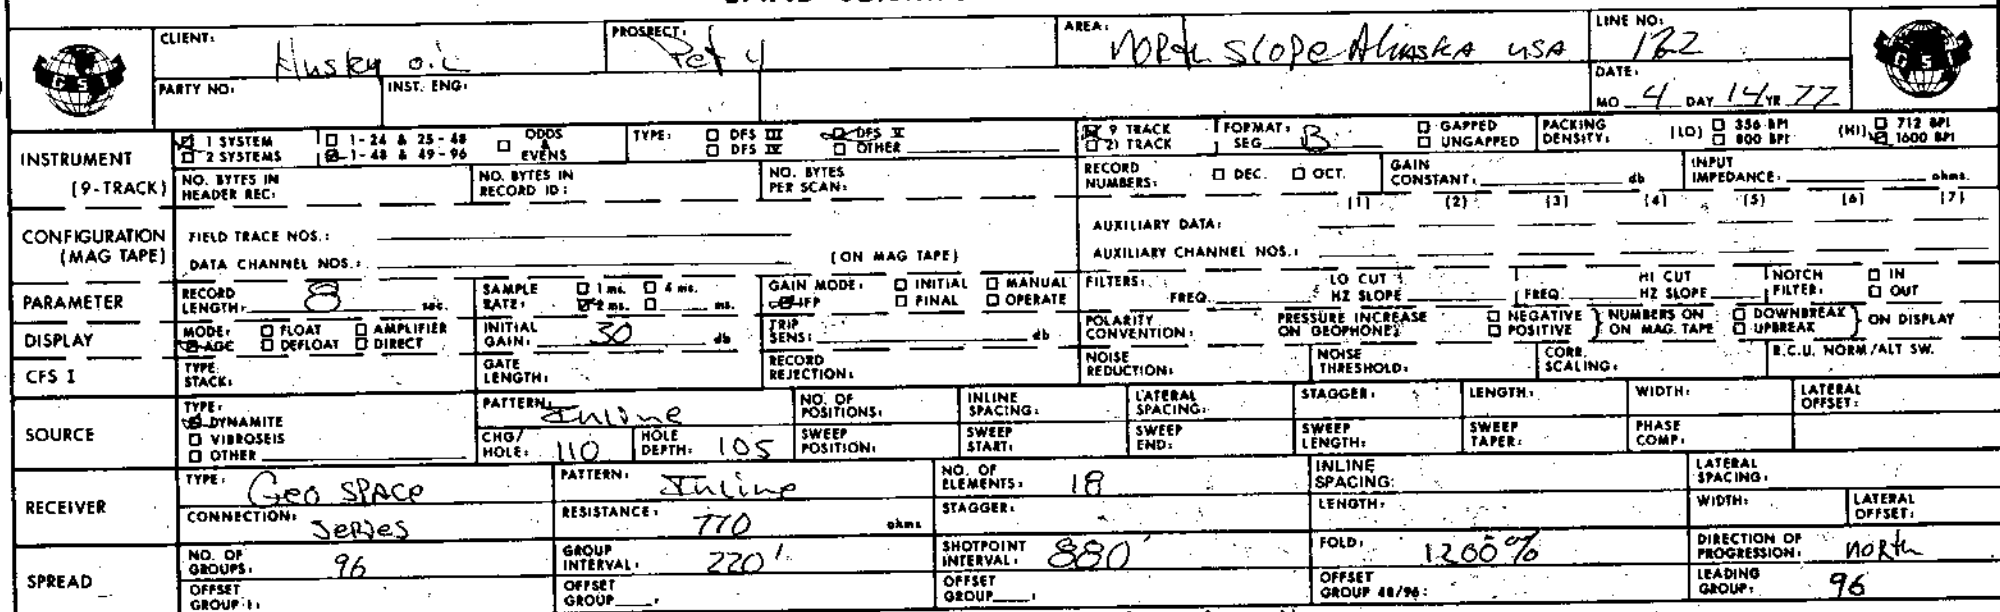 CLIENT: Husky oil PROSPECT: Pet 4 AREA: NORth SlOPe AlASKA USA LINE NO: 122
PARTY NO: INST. ENG: DATE: MO 4 DAY 14 YR 77
GSI GSI
INSTRUMENT (9-TRACK)
1 SYSTEM 1-24 & 25-48 ODDS & EVENS TYPE: DFS III DFS V 9 TRACK FORMAT: GAPPED PACKING DENSITY: (LO) 356 BPI (HI) 712 BPI
2 SYSTEMS 1-48 & 49-96 DFS IV OTHER 21 TRACK SEG B UNGAPPED 800 BPI 1600 BPI
NO. BYTES IN HEADER REC: NO. BYTES IN RECORD ID: NO. BYTES PER SCAN: RECORD NUMBERS: DEC. OCT. GAIN CONSTANT: db INPUT IMPEDANCE: ohms.
(1) (2) (3) (4) (5) (6) (7)
CONFIGURATION (MAG TAPE)
FIELD TRACE NOS.: AUXILIARY DATA:
DATA CHANNEL NOS.: (ON MAG TAPE) AUXILIARY CHANNEL NOS.:
PARAMETER
RECORD LENGTH: 8 sec. SAMPLE RATE: 1 ms. 4 ms. 2 ms. ms. GAIN MODE: INITIAL MANUAL IFP FINAL OPERATE FILTERS: FREQ. LO CUT HZ SLOPE FREQ. HI CUT HZ SLOPE NOTCH FILTER: IN OUT
DISPLAY
MODE: FLOAT AMPLIFIER AGC DEFLOAT DIRECT INITIAL GAIN: 30 db TRIP SENS: db POLARITY CONVENTION: PRESSURE INCREASE ON GEOPHONES NEGATIVE POSITIVE NUMBERS ON ON MAG. TAPE DOWNBREAK UPBREAK ON DISPLAY
CFS I
TYPE STACK: GATE LENGTH: RECORD REJECTION: NOISE REDUCTION: NOISE THRESHOLD: CORR. SCALING: R.C.U. NORM/ALT SW.
SOURCE
TYPE: PATTERN: Inline NO. OF POSITIONS: INLINE SPACING: LATERAL SPACING: STAGGER: LENGTH: WIDTH: LATERAL OFFSET:
DYNAMITE
VIBROSEIS
OTHER
CHG/HOLE: 110 HOLE DEPTH: 105 SWEEP POSITION: SWEEP START: SWEEP END: SWEEP LENGTH: SWEEP TAPER: PHASE COMP:
RECEIVER
TYPE: Geo SPACe PATTERN: Inline NO. OF ELEMENTS: 18 INLINE SPACING: LATERAL SPACING:
CONNECTION: SeRies RESISTANCE: 770 ohms STAGGER: LENGTH: WIDTH: LATERAL OFFSET:
SPREAD
NO. OF GROUPS: 96 GROUP INTERVAL: 220' SHOTPOINT INTERVAL: 880' FOLD: 1200% DIRECTION OF PROGRESSION: NORth
OFFSET GROUP 1: OFFSET GROUP : OFFSET GROUP : OFFSET GROUP 48/96: LEADING GROUP: 96